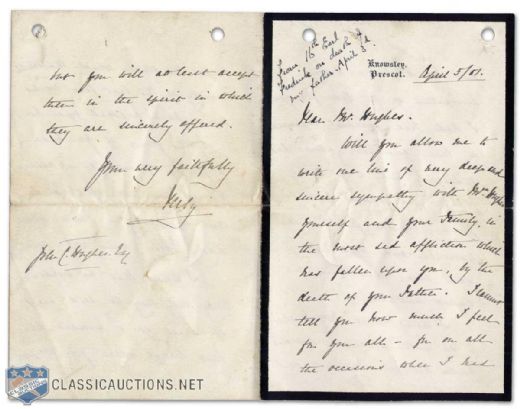 From 16th Earl
Frederick on death of
my father. April 3d
Knowsley,
Prescot.
April 5/01.
Dear Mr. Hughes.
Will you allow me to
write one line of very deep and
sincere sympathy with Mrs Hughes
yourself and your Family in
the most sad affliction which
has fallen upon you, by the
death of your Father. I cannot
tell you how much I feel
for you all - for on all
the occasions when I had
but you will at least accept
them in the spirit in which
they are sincerely offered.
Yours very faithfully
Derby
John C. Hughes. Esq
CLASSICAUCTIONS.NET